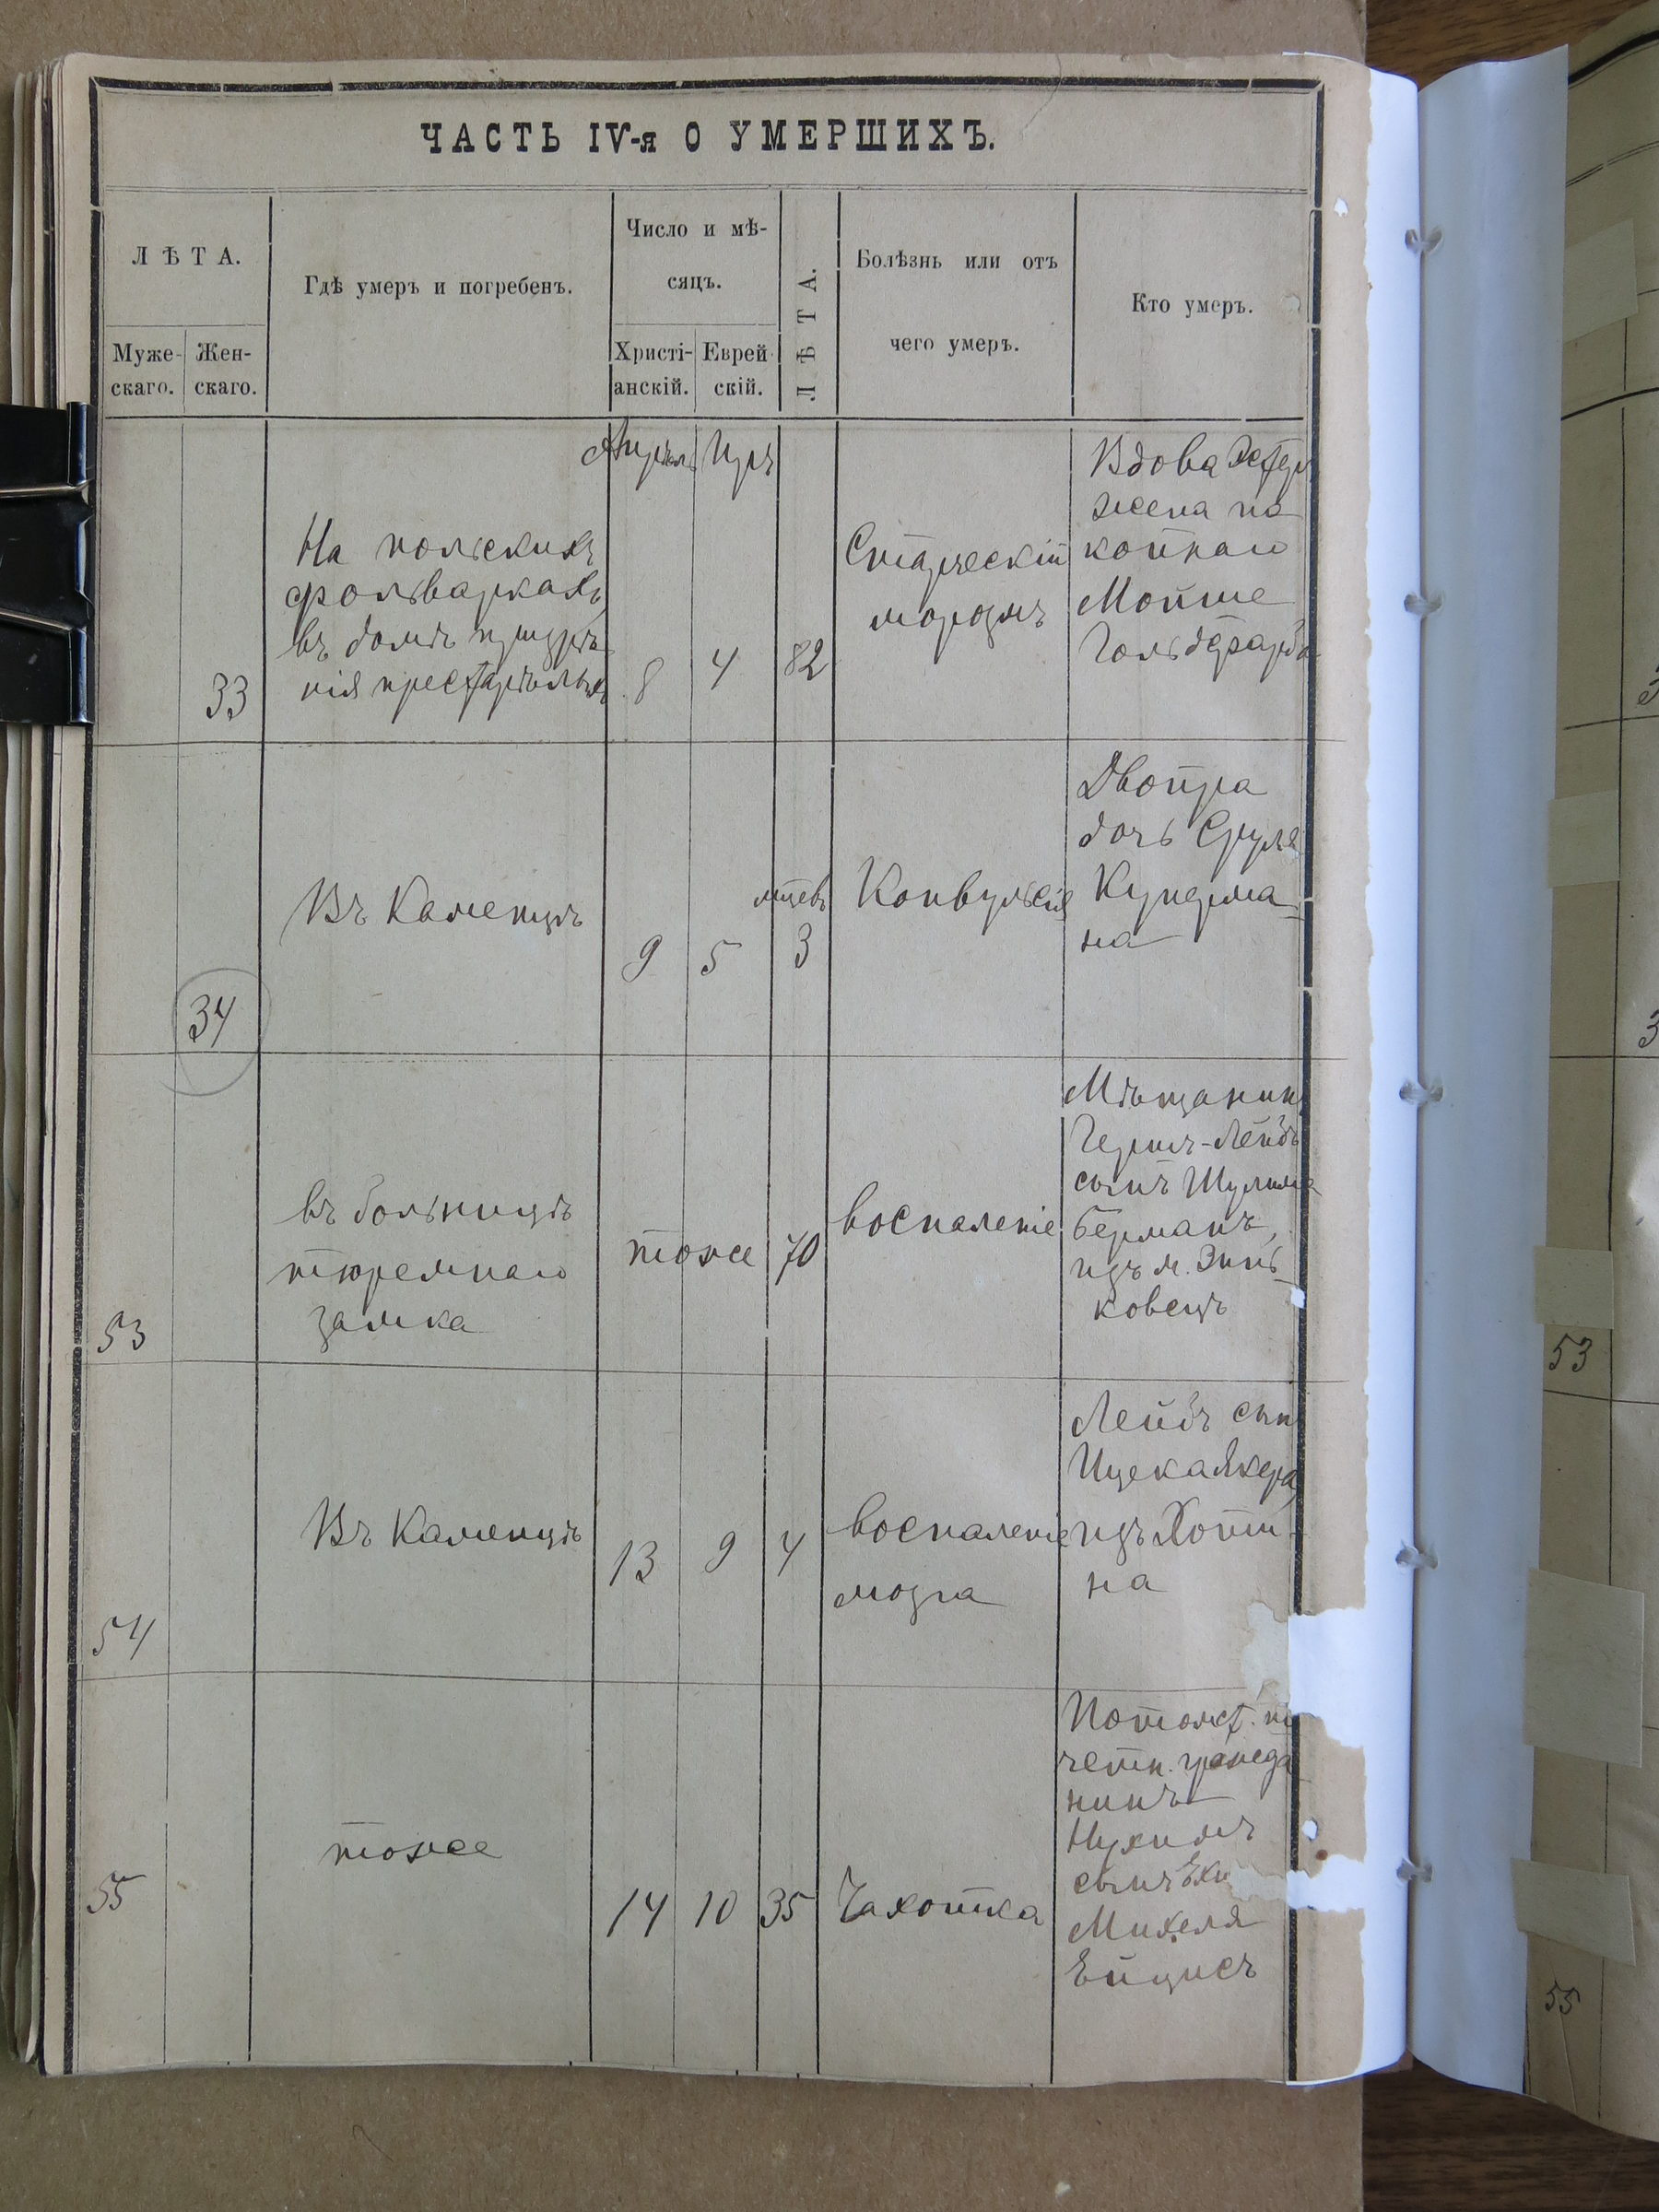 ЧАСТЬ IV-я О УМЕРШИХЪ.
ЛѢТА.
Муже-
скаго.
Жен-
скаго.
Гдѣ умеръ и погребенъ.
Число и мѣ-
сяцъ.
Христі-
анскій.
Еврей
скій.
ЛѢТА.
Болѣзнь или отъ
чего умеръ.
Кто умеръ.
33
На польскихъ
фольваркахъ
въ домѣ призрѣ
нія престарѣлыхъ
Апрѣль
8
Иръ
4
82
Старческій
моразмъ
Вдова Эстеръ
жена по
койнаго
Мойше
Гольдфарба
34
Въ Каменцѣ
9
5
мцевъ
3
Конвульсія
Двойра
дочь Сруля
Куперма
на
53
въ больницѣ
тюремнаго
замка
тоже
70
воспаленіе
Мѣщанинъ
Гершъ-Лейбъ
сынъ Шулима
Берманъ,
изъ м. Зинь
ковецъ
54
Въ Каменцѣ
13
9
4
воспаленіе
мозга
Лейбъ сын
Ицека Якера
изъ Хоти-
на
55
тоже
14
10
35
Чахотка
Потомст. по
четн. гражда
нинъ
Нухимъ
сынъ
Михеля
Ейцисъ
53
55